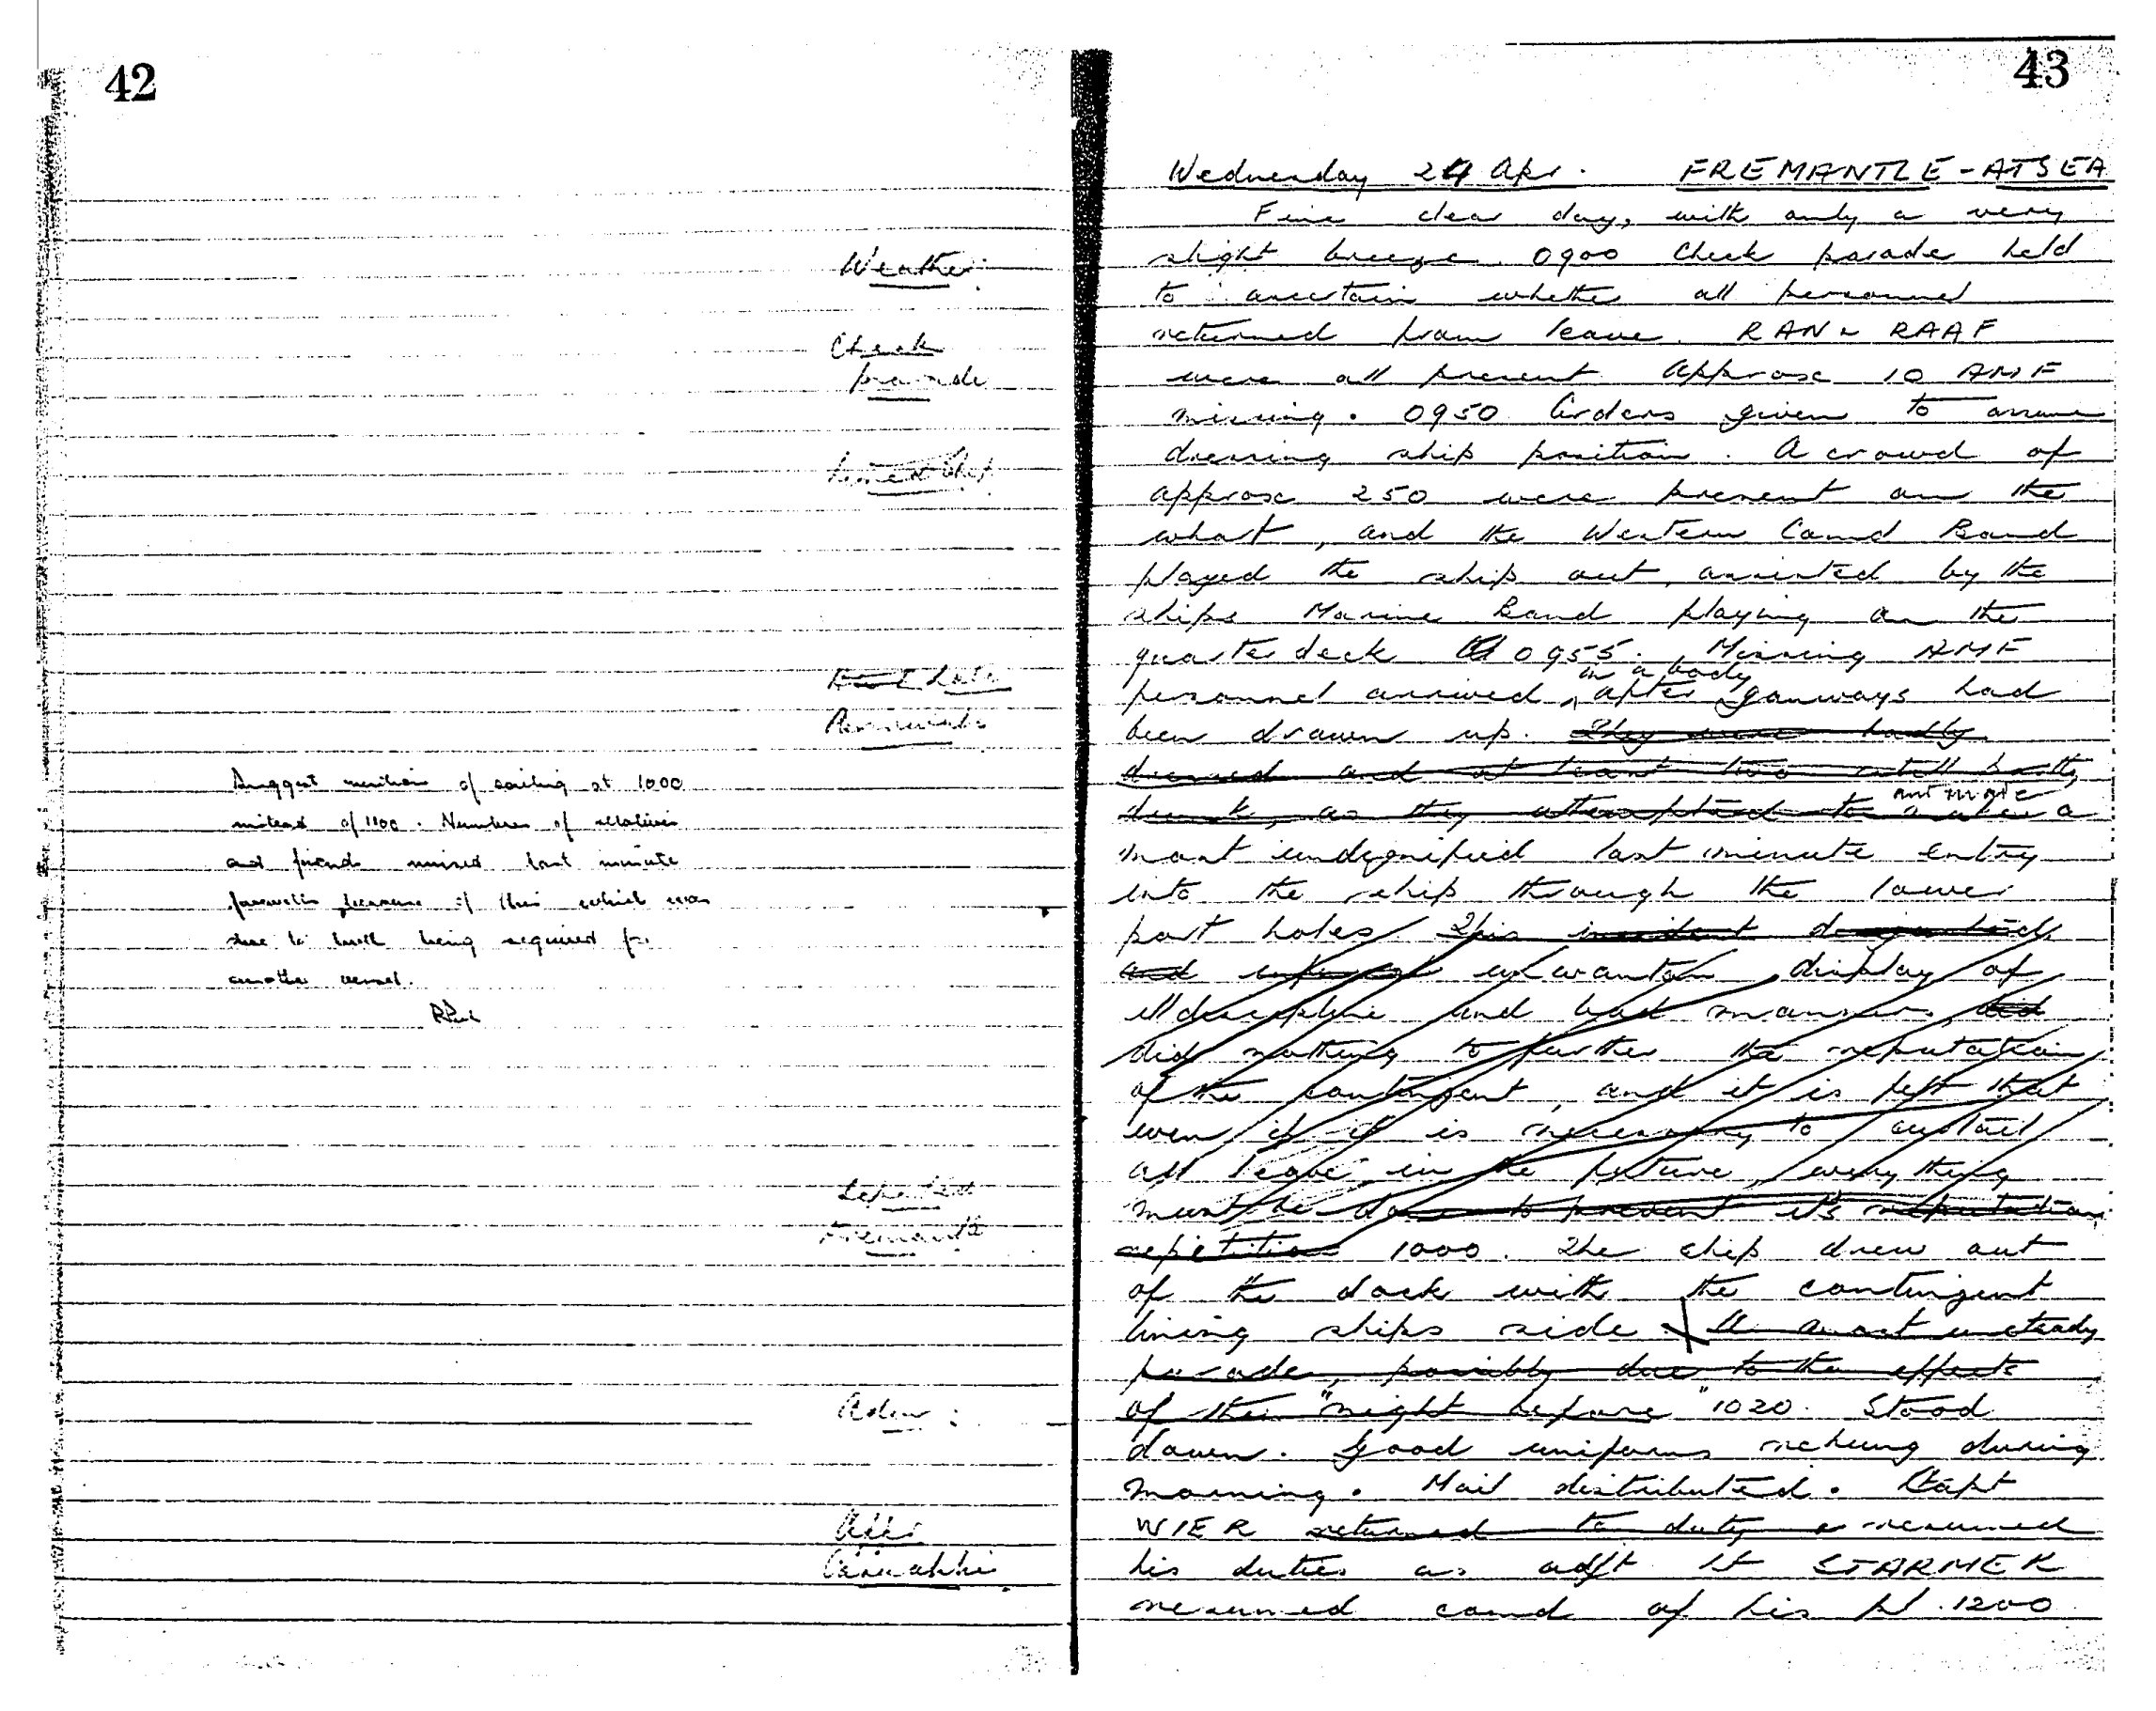 42
Weather:
Check
parade
Late
Suggest mention of sailing at 1000
instead of 1100. Number of relatives
and friends missed last minute
farewells because of this which was
due to berth being required for
another vessel.
Departed
Fremantle
Adm:
43
Wednesday 24 Apr. FREMANTLE - AT SEA
Fine clear day, with only a very
slight breeze. 0900 Check parade held
to ascertain whether all personnel
returned from leave. RAN & RAAF
were all present. Approx 10 AMF
missing. 0950 Orders given to assume
dressing ship position. A crowd of
approx 250 were present on the
wharf, and the Western Comd Band
played the ship out, assisted by the
ships Marine Band playing on the
quarter deck 0955. Missing AMF
in a body
personnel arrived, after ganways had
been drawn up. They were badly
dressed and at least two still partly
and made
drunk, as they attempted to make a
most undignified last minute entry
into the ship through the lower
port holes. This incident
and wanton display of
illdiscipline and bad manners, did
did nothing to further the reputation
of the contingent, and it is felt that
even if it is necessary to curtail
all leave in the future, everything
must be done to prevent its reputation
repetition 1000. The ship drew out
of the dock with the contingent
lining ships side. A most unsteady
parade, possibly due to the effects
of the "night before" 1020. Stood
down. Good uniforms during
morning. Mail distributed. Capt
WIER returned to duty & resumed
his duties as adjt Lt STARMER
resumed comd of his pl. 1200